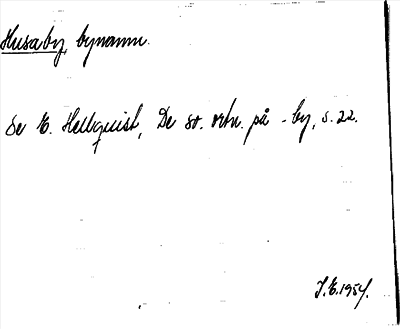 Husaby, bynamn.
Se E. Hellquist, De sv. ortn. på -by, s. 22.
J.E. 1954.